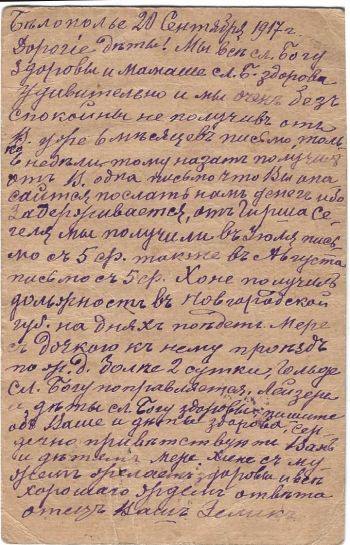 Бѣлополье 20 Сентября 1917 г.
Дорогіе дѣты! Мы всѣ сл. Богу
здоровы и мамаше сл. Б. здорова
удивительно и мы очень без
спокойны не получив от
В. уже 6 мѣсяцев письмо, толь
ко недѣли тому назат получил
от В. одна письмо что Вы опа
саитса послать нам денег ибо
задерживается, от Гирша Се
геля мы получили в Іюля пись
мо с 5 ср. также в Августа
письмо с 5 ср. Хоне получил
должность в Новгородской
губ. на днях поѣдет Мере
с дочкою к нему проѣзд
по ж. д. более 2 сутки, Гольде
сл. Богу поправляется, Лейзере
дѣты сл. Богу здоровы пишите
обѣ Ваше и дѣты здоровье сер
дечно привѣтствуюти Вам
и дѣтем Мере Хиене с му
жем желает здоровы и всѣ
хорошаго ждем отвѣта
отец Ваш